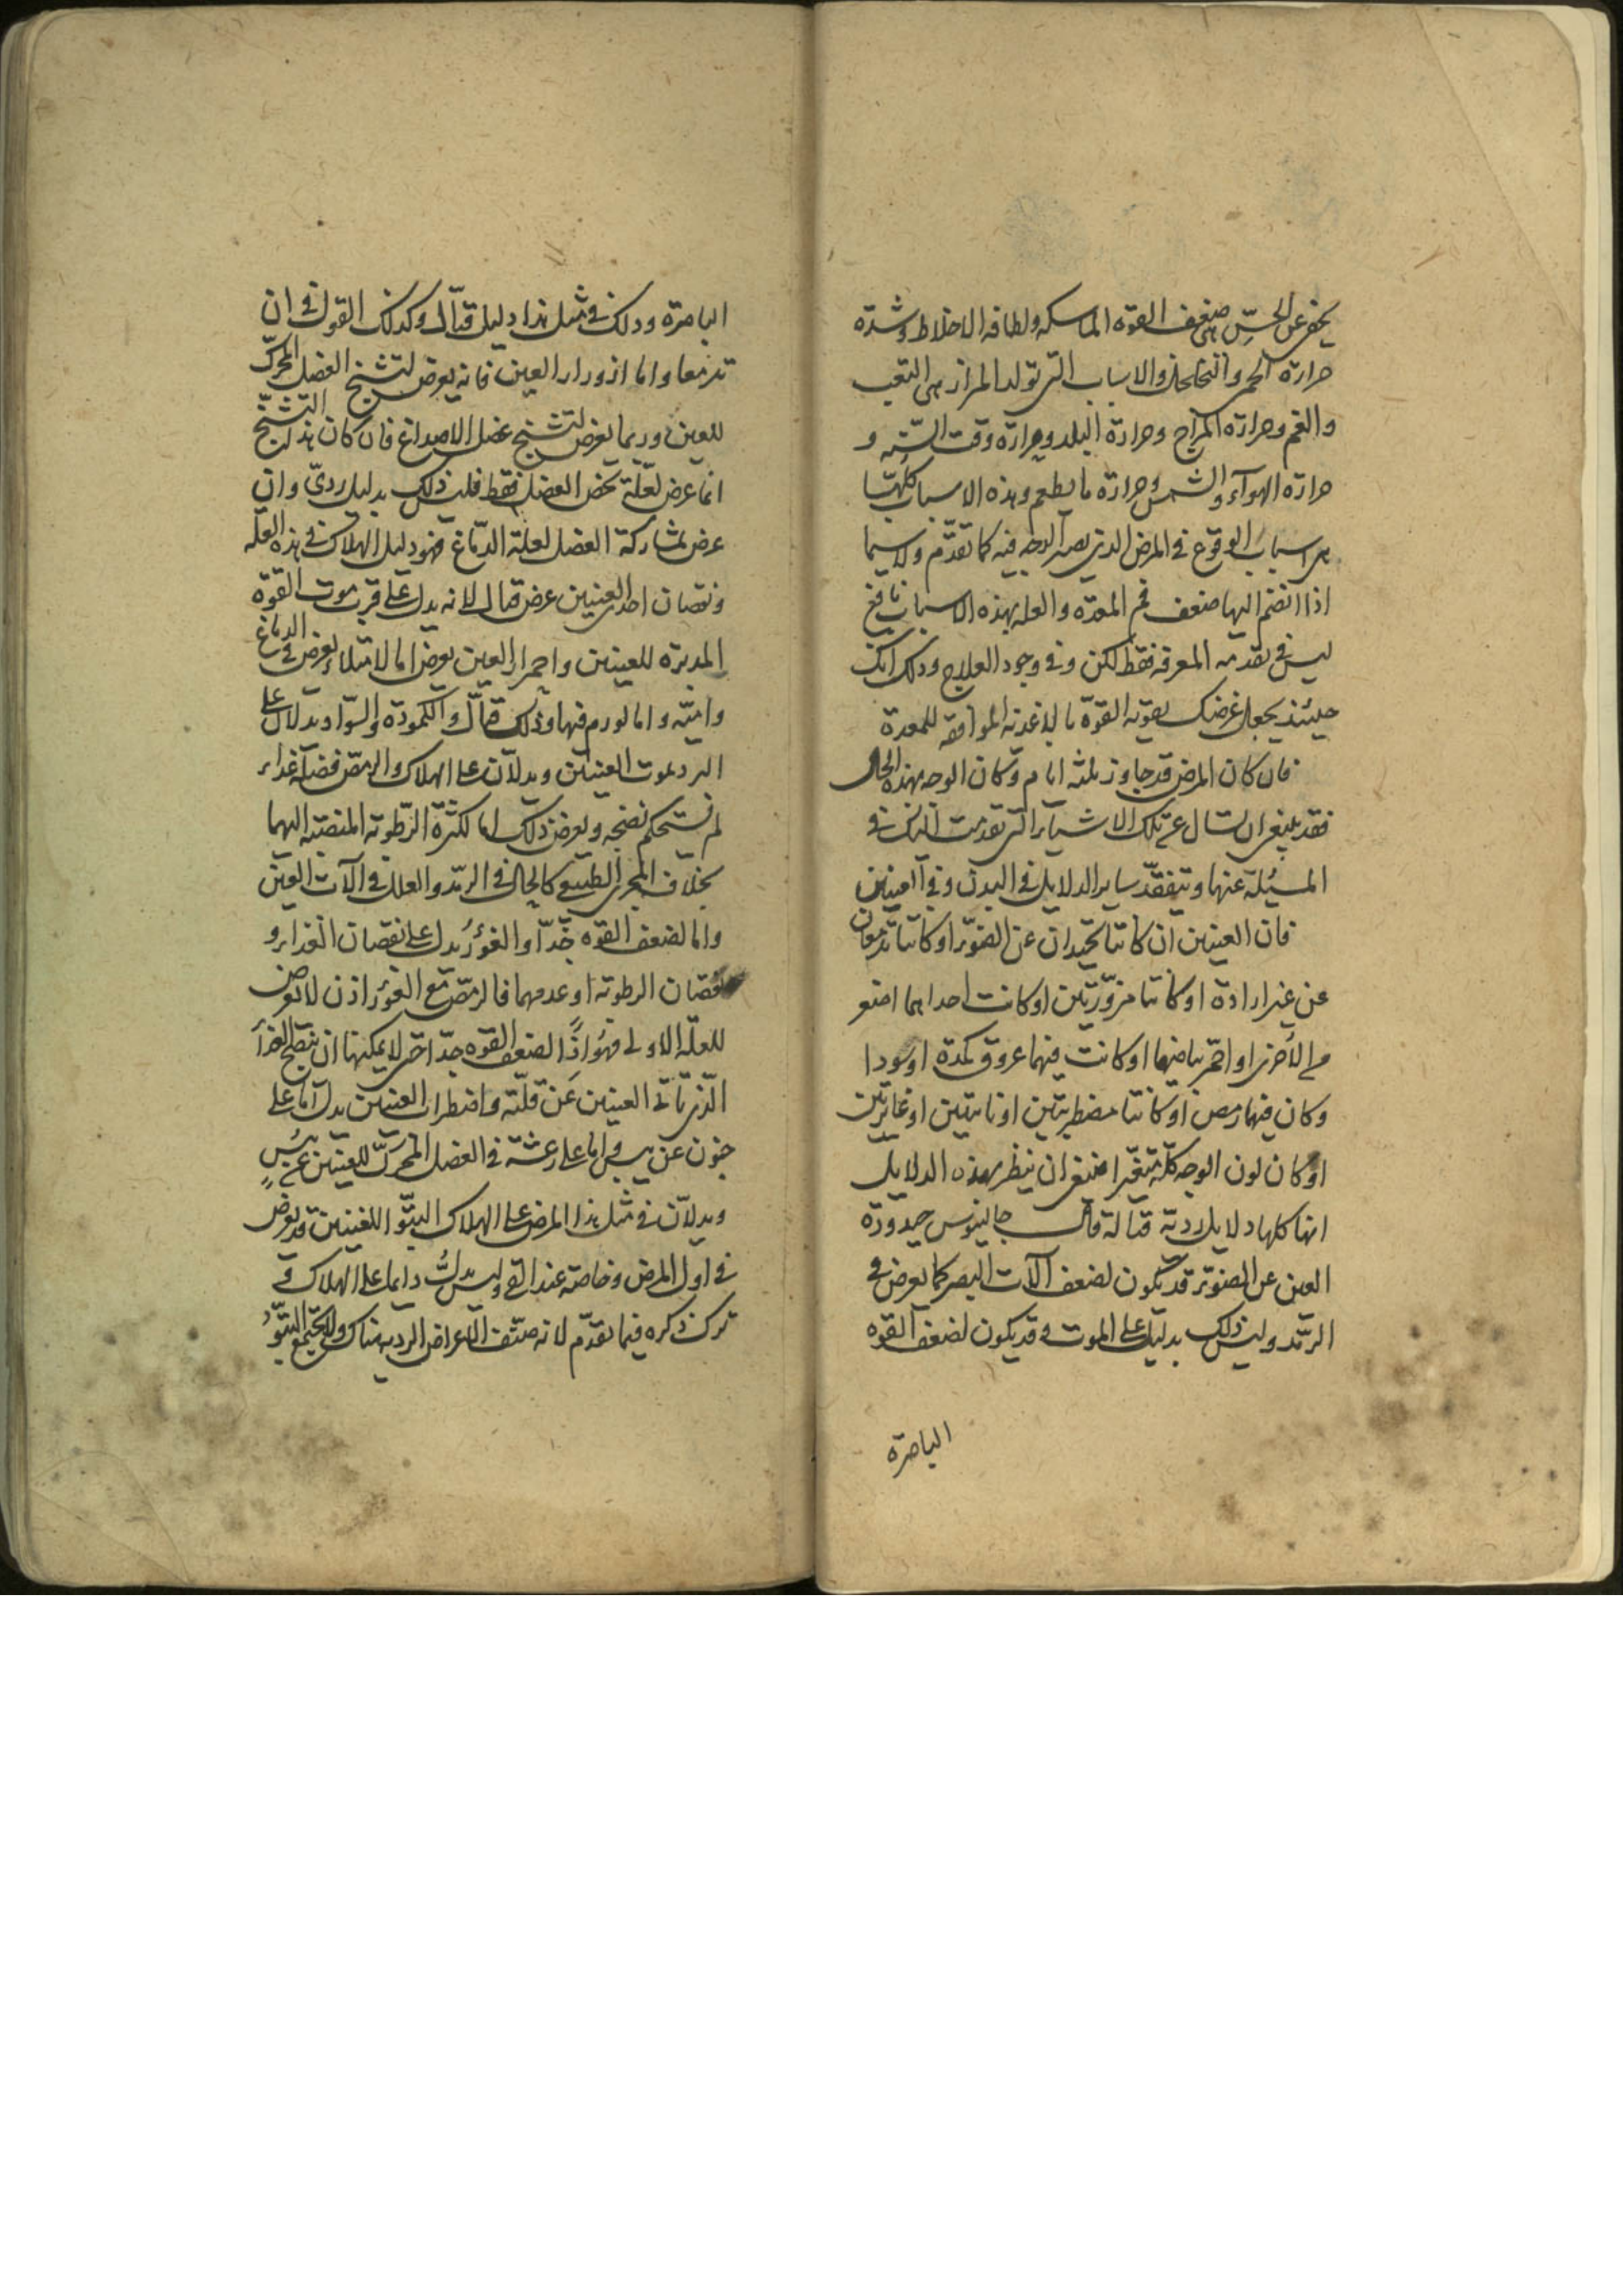 يخفى عن الحسّ هى ضعف القوه الماسكه ولطافه الاخلاط وشدة
حرارة الحمى والتخلخل والاسباب التى تولد المرار هى التعب
والغم وحرارة المزاج وحرارة البلد وحرارة وقت السنه و
حرارة الهوآء والشمس وحرارة ما يطعم وهذه الاسباب كلّها
هى اسباب الوقوع فى المرض الذى يصير الوجه فيه كما تقدّم ولا سيما
اذا انضم اليها ضعف فم المعدة والعلم بهذه الاسباب نافع
ليس فى تقدمه المعرفه فقط لكن وفى وجود العلاج وذلك انك
حينئذ يجعل غرضك تقويه القوّة بالاغذيه الموافقه للمعدة
فان كان المرض قد جاوز ثلثه ايام وكان الوجه بهذه الحال
فقد ينبغى ان تسال عن تلك الاشياء التى تقدمت اليك فى
المسئلة عنها وتتفقّد ساير الدلايل فى البدن وفى العينين
فان العينين ان كانتا تحيدان عن الضوّء او كانتا تدمعان
عن غير ارادة او كانتا مزوّرتين او كانت احداهما اصغر
من الاخرى او احمّر بياضهما او كانت فيهما عروق كمدة او سودا
وكان فيهما رمص او كانتا مضطربتين او ناتيتين او غايرتين
او كان لون الوجه كلّه متغيّرا فينبغى ان ينظر بهذه الدلايل
انها كلها دلايل ردية قتالة قال جالينوس حيدودة
العين عن الضوّء قد يكون لضعف آلات البصر كما يعرض فى
الرمد وليس ذلك بدليل على الموت وقد يكون لضعف القوه
الباصرة
الباصرة وذلك فى مثل هذا دليل قتّال وكذلك القول فى ان
تدمعا واما ازورار العين فانه يعرض لتشنج العضل المحرّك
للعين وربما يعرض لتشنج عضل الاصداغ فان كان هذا التشنّج
انما عرض لعلّة تخص العضل فقط فليس ذلك بدليل ردىّ وان
عرض بمشاركة العضل لعلة الدّماغ فهو دليل الهلاك فى هذه العلّه
ونقصان احدى العينين عرض قتال لانه يدل على قرب موت القوّة
المدبرة للعينين واحمرار العين يعرض اما لامتلاء يعرض فى الدماغ
وامّا لورم فيها وذلك قتّال والكمودة والسّواد يدلان على
البرد لموت العينين ويدلّان على الهلاك والرمص فضلة غذاء
لم يستحكم نضجه ويعرض ذلك اما لكثرة الرّطوبه المنصبّه اليهما
بخلاف المجرى الطبيعى كالحال فى الرمد والعلل فى آلات العين
واما لضعف القوه جدّا والغؤر يدل على نقصان الغذاء و
نقصان الرطوبة او عدمهما فالرمص مع الغؤر اذن لا يعرض
للعلّه الاولى فهو اذًا لضعف القوه جدّا حتى لا يمكنها ان تنضج الغذآ
الّذى ياتى العينين عن قلّته واضطراب العينين يدل اما على
جنون عن يبس واما على رعشة فى العضل المحرّك للعينين عن يبسٍ
ويدلّان فى مثل هذا المرض على الهلاك النتّو اللعينين قد يعرض
فى اول المرض وخاصة عند القى وليس يدلّ دايما على الهلاك و
ترك ذكره فيما تقدّم لانه صنّف الاعراض الرديه هناك